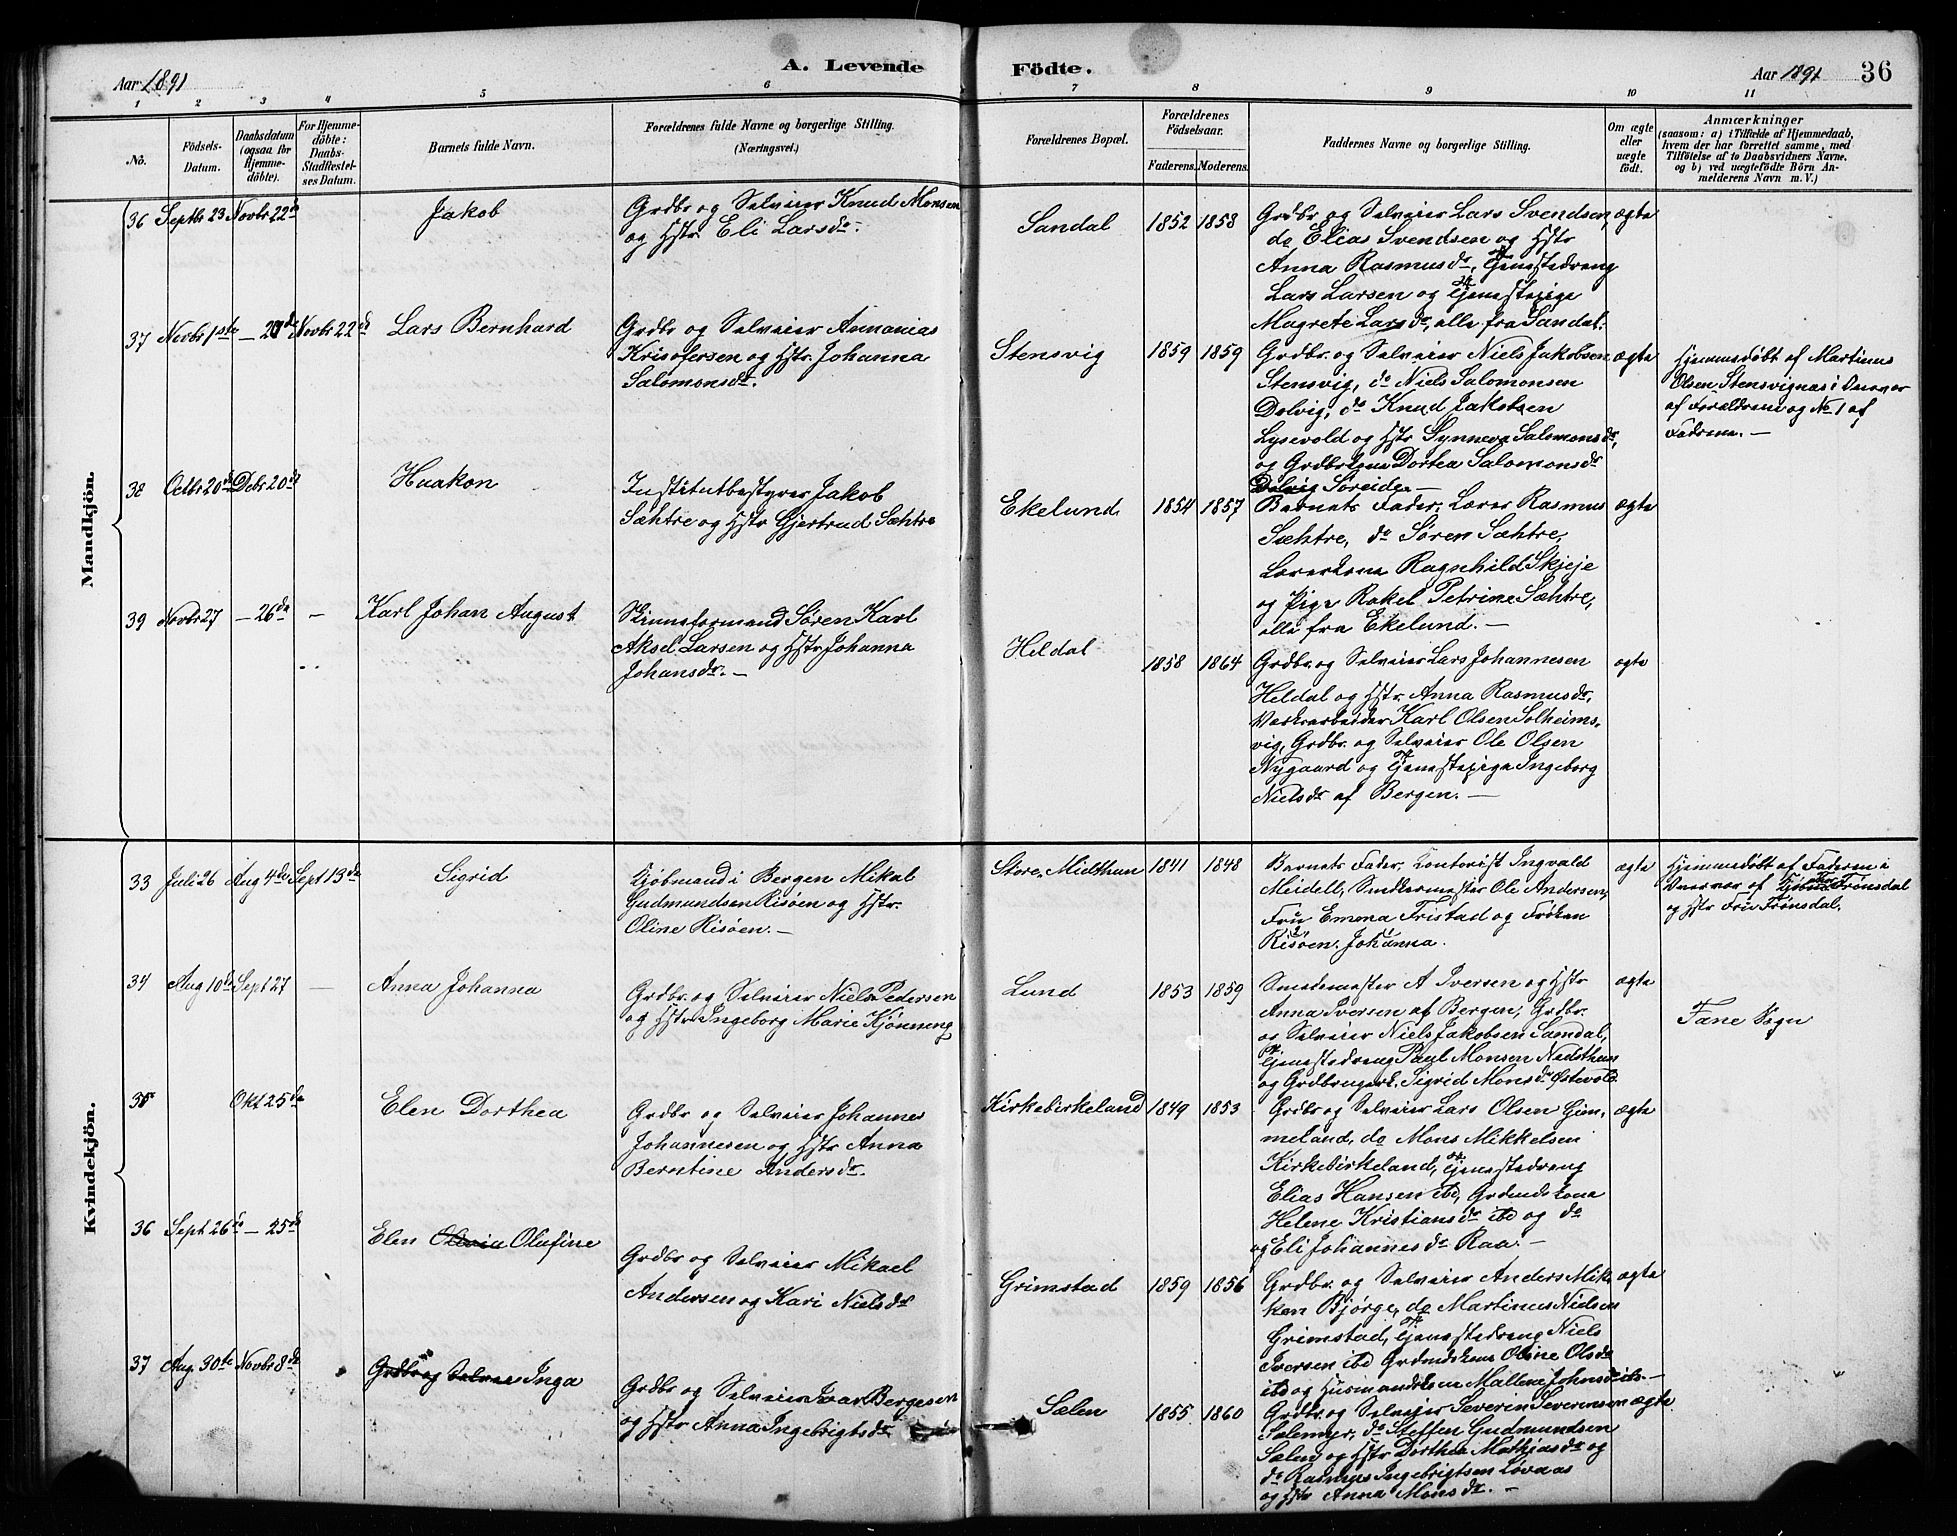 Aar 1891
A. Levende
Födte.
Aar 1891
36
1 2 3 4 5 6 7 8 9 10 11
No.
Födsels-
Datum.
Daabsdatum
(ogsaa for
Hjemme-
döbte).
For Hjemme-
döbte:
Daabs-
Stadfæstel-
ses Datum.
Barnets fulde Navn.
Forældrenes fulde Navne og borgerlige Stilling.
(Næringsvei.)
Forældrenes Bopæl.
Forældrenes
Födselsaar.
Faderens. Moderens.
Faddernes Navne og borgerlige Stilling.
Om ægte
eller
uægte
födt.
Anmærkninger
(saasom: a) i Tilfælde af Hjemmedaab,
hvem der har forrettet samme, med
Tilföielse af to Daabsvidners Navne,
og b) ved uægtefödte Börn An-
melderens Navn m. V.)
Mandkjön.
36
Septbr 23 Novbr 22de
Jakob
Grdbr og Selveier Knud Monsen
og Hstr Eli Larsdr.
Sandal
1852 1858
Grdbr og Selveier Lars Svendsen,
do Elias Svendsen og Hstr
Anna Rasmusdr, Tjenestedreng
Lars Larsen og Tjenestepige
Magrete Larsdr, alle fra Sandal.
ægte
37
Novbr 1ste
Novbr 22de
Lars Bernhard
Grdbr og Selveier Annanias
Kristofersen og Hstr. Johanna
Salomonsdr.
Stensvig
1859 1859
Grdbr. og Selveier Niels Jakobsen
Stensvig, do Niels Salomonsen
Dolvig, do Knud Jakobsen
Lysevold og Hstr Synneva Salomonsdr,
og Grdbrkone Dortea Salomonsdr
Dolvig Søreide. —
ægte
Hjemmedøbt af Martinus
Olsen Stensvignes i Overvær
af Forældrene og No 1 af
Fadrene. —
38
Octbr 20de Debr 20de
Haakon
Institutbestyrer Jakob
Sæhtre og Hstr Gjertrud Sæhtre
Ekelund
1854 1857
Barnets Fader, Lærer Rasmus
Sæhtre, do Søren Sæhtre,
Lærerkone Ragnhild Skjeje
og Pige Rakel Petrine Sæhtre,
alle fra Ekelund. —
ægte
39
Novbr 27 — 26de —
Karl Johan August
Søren Karl
Aksel Larsen og Hstr Johanna
Johansdr. —
Heldal
1858 1864
Grdbr og Selveier Lars Johannesen
Heldal og Hstr. Anna Rasmusdr,
Værkarbeider Karl Olsen Solheims-
vig, Grdbr. og Selveier Ole Olsen
Nygaard og Tjenestepige Ingeborg
Nielsdr af Bergen. —
ægte
Kvindekjön.
33
Juli 26 Aug 4de Sept 13de
Sigrid
Kjøbmand i Bergen Mikal
Gudmundsen Risøen og Hstr.
Oline Risøen. —
Store Midthun
1841 1848
Barnets Fader, Kontorist Ingvald
Meidell, Snedkermester Ole Andersen,
Fru Emma Fristad og Frøken
Risøen. Johanna.
ægte
Hjemmedøbt af Faderen i
Overvær af Kjøbmd Frønsdal
og Hstr Fru Frønsdal.
34
Aug 10de Sept 27 —
Anna Johanna
Grdbr. og Selveier Niels Pedersen
og Hstr Ingeborg Marie Kjønneng
Lund
1853 1859
Smedemester A Iversen og Hstr
Anna Iversen af Bergen, Grdbr.
og Selveier Niels Jakobsen Samdal,
Tjenestedreng Paul Monsen Nedsthun
og Grdbrugerk. Sigrid Monsdr Østevold
ægte
Fane Sogn
35
Okt 25de
Elen Dorthea
Grdbr og Selveier Johannes
Johannesen og Hstr Anna
Berntine Andersdr.
Kirkebirkeland
1849 1853
Grdbr og Selveier Lars Olsen Gim-
meland, do Mons Mikkelsen
Kirkebirkeland, Tjenestedreng
Elias Hansen ibd, Grdmdskone
Helene Kristiansdr ibd og do
og Eli Johannesdr Raa. —
ægte
36
Sept 26de — 25de
Elen Olufine
Grdbr og Selveier Mikael
Andersen og Kari Nielsdr
Grimstad
1859 1856
Grdbr. og Selveier Anders Mik-
ken Bjørge, do Martinus Nielsen
Grimstad, Tjenestedreng Niels
Iversen ibd Grdmdskone Oline Olsdr
ibd og Husmandskone Mallene Johnsdr ib. —
ægte
37
Aug 30te Novbr 8de
Grdbr og Selveier Inga
Grdbr og Selveier Ivar Bergesen
og Hstr Anna Ingebrigtsdr
Sælen
1855 1860
Grdbr. og Selveier Severin Severinsen
Sælenmyr, do Steffen Gudmundsen
Sælen og Hstr Dorthea Mathiasdr og
do Rasmus Ingebrigtsen Løvaas
og Hstr Anna Monsdr. —
ægte